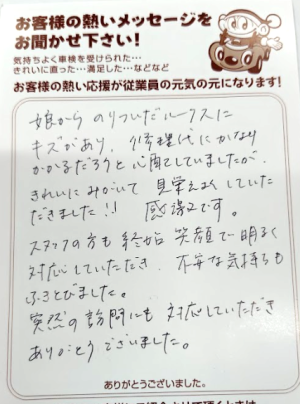 お客様の熱いメッセージを
お聞かせ下さい!
気持ちよく車検を受けられた…
きれいに直った…満足した…などなど
お客様の熱い応援が従業員の元気の元になります!
娘から のりついだルークスに
キズがあり、修理代にかなり
かかるだろうと心配していましたが、
きれいにみがいて 見栄えよくしていた
だきました!! 感謝です。
スタッフの方も 終始 笑顔で明るく
対応していただき、不安な気持ちも
ふきとびました。
突然の訪問にも 対応していただき
ありがとうございました。
ありがとうございました。